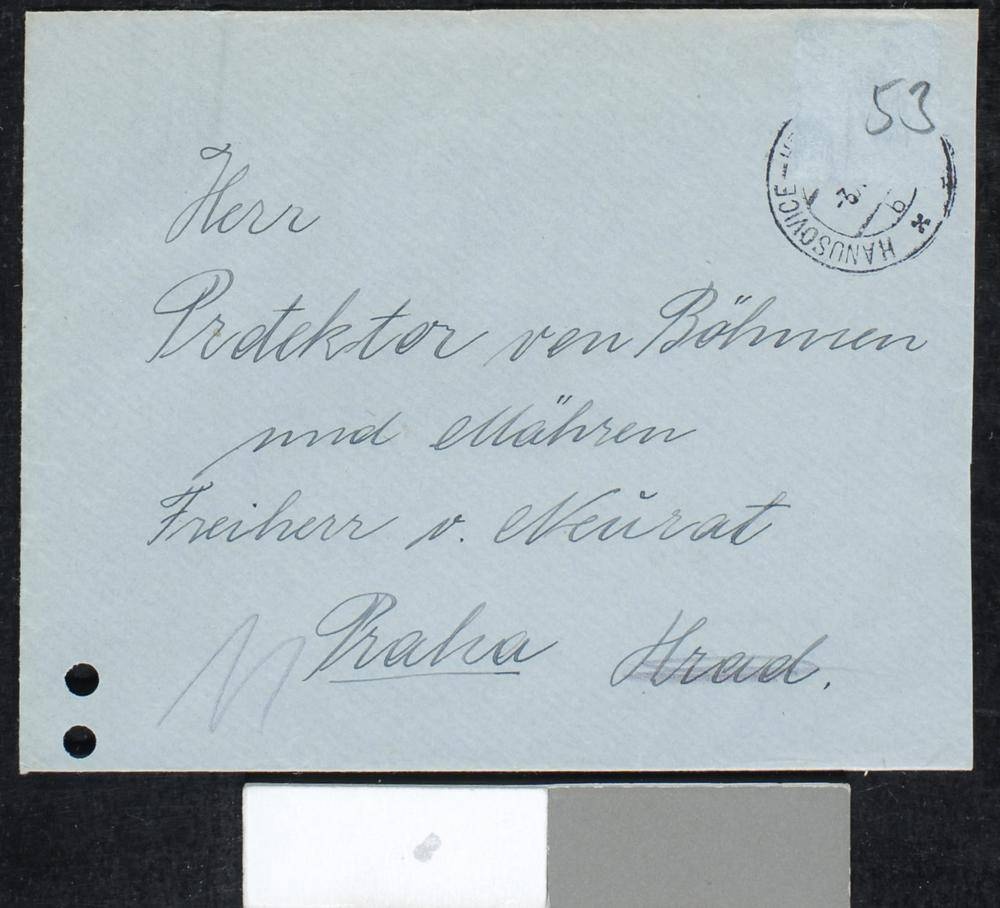 53
HANUSOVICE
b
Herr
Protektor von Böhmen
und Mähren
Freiherr v. Neurat
Praha Hrad.